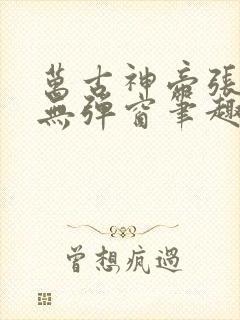 萬古神帝張
無彈窗筆趣
曾想疯過